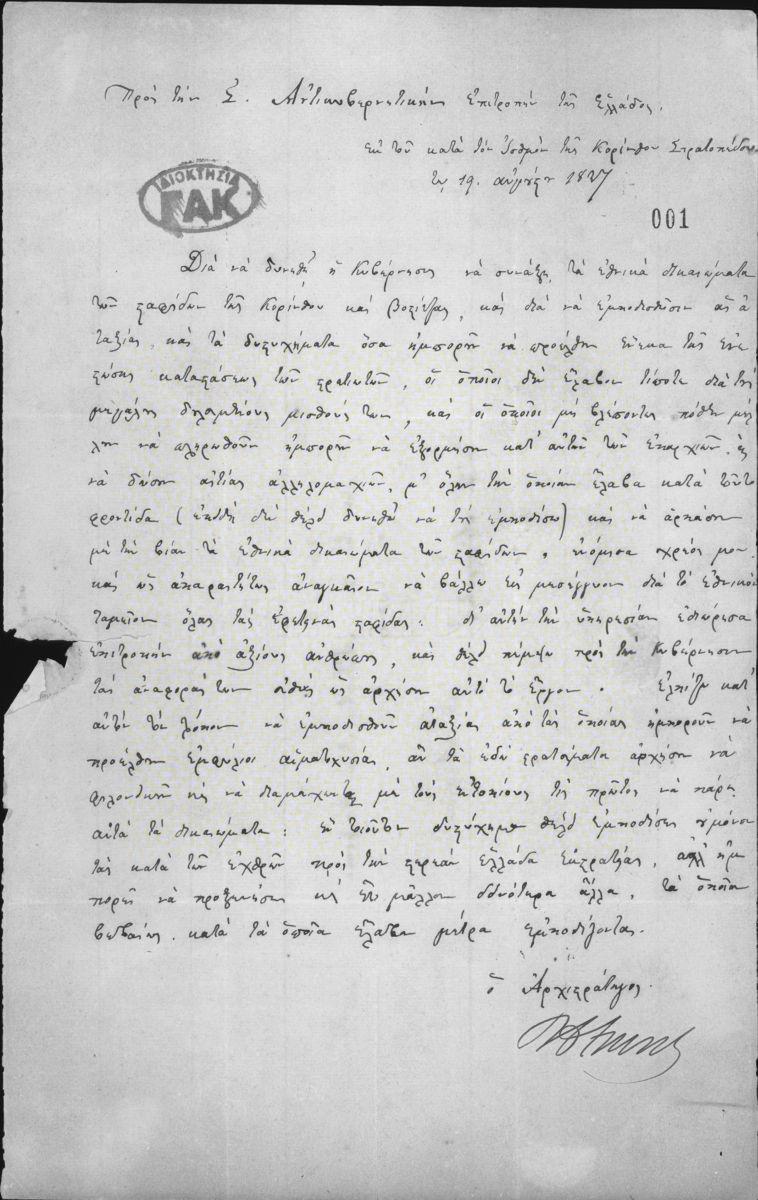 Πρὸς τὴν Σ. Ἀντικυβερνητικὴν ἐπιτροπὴν τῆς Ἑλλάδος.
ἐκ τοῦ κατὰ τὸν Ἰσθμὸν τῆς Κορίνθου Στρατοπέδου
τῇ 19. αὐγούστ 1827
ΙΔΙΟΚΤΗΣΙΑ
ΓΑΚ
001
Διὰ νὰ δυνηθῇ ἡ Κυβέρνησις νὰ συνάξῃ τὰ ἐθνικὰ δικαιώματα
τῶν σταφίδων τῆς Κορίνθου καὶ Βοστίτζας, καὶ διὰ νὰ ἐμποδισθῶσιν αἱ ἀ
ταξίαι, καὶ τὰ δυστυχήματα ὅσα ἠμπορῆ νὰ προέλθῃ ἕνεκα τῆς ἐνε
στώσης καταστάσεως τῶν στρατιωτῶν, οἱ ὁποῖοι δὲν ἔλαβον τίποτε διὰ τοὺς
μισθούς των, καὶ οἱ ὁποῖοι μὴ βλέποντες πόθεν μέλ
λουν νὰ πληρωθοῦν ἠμπορῆ νὰ ἐξορμήσουν κατ' αὐτῶν τῶν ἐπαρχιῶν,
νὰ δώσουν αἰτίας ἀλληλομαχιῶν, μ' ὅλην τὴν ὁποίαν ἔλαβα κατὰ τοῦτο
φροντίδα (ἐπειδὴ δὲν θέλω δυνηθῆ νὰ τοὺς ἐμποδίσω) καὶ νὰ ἁρπάσουν
μὲ τὴν βίαν τὰ ἐθνικὰ δικαιώματα τῶν σταφίδων. ἐνόμισα χρέος μου
καὶ ὡς ἀπαραιτήτως ἀναγκαῖον νὰ βάλλω εἰς μεσέγγυον διὰ τὸ ἐθνικὸν
ταμεῖον ὅλας τὰς σταφίδας: δι' αὐτὴν τὴν ὑπηρεσίαν ἐδιώρισα
ἐπιτροπὴν ἀπὸ ἀξίους ἀνθρώπους, καὶ θέλω πέμψει πρὸς τὴν Κυβέρνησιν
τὰς ἀναφοράς των εὐθὺς ὡς ἀρχήσῃ αὐτὸ τὸ ἔργον. Ἐλπίζω κατ'
αὐτὸν τὸν τρόπον νὰ ἐμποδισθοῦν ἀταξίαι ἀπὸ τὰς ὁποίας ἠμποροῦν νὰ
προέλθουν ἐμφύλιοι αἱματοχυσίαι, ἂν τὰ ἐδῶ στρατεύματα ἀρχήσουν νὰ
φιλονεικοῦν καὶ νὰ διαμάχωνται μὲ τοὺς ἐντοπίους τίς πρῶτος νὰ πάρῃ
αὐτὰ τὰ δικαιώματα: ἓν τοιοῦτον δυστύχημα θέλει ἐμποδίσει οὐ μόνον
τὰς κατὰ τῶν ἐχθρῶν πρὸς τὴν στερεὰν Ἑλλάδα ἐκστρατείας, ἀλλ' ἠμ
πορεῖ νὰ προξενήσῃ καὶ ἔτι μᾶλλον ὀδυνότερα ἄλλα, τὰ ὁποῖα
βεβαίως. κατὰ τὰ ὁποῖα ἔλαβον μέτρα ἐμποδίζονται.
ὁ Ἀρχιστράτηγος.